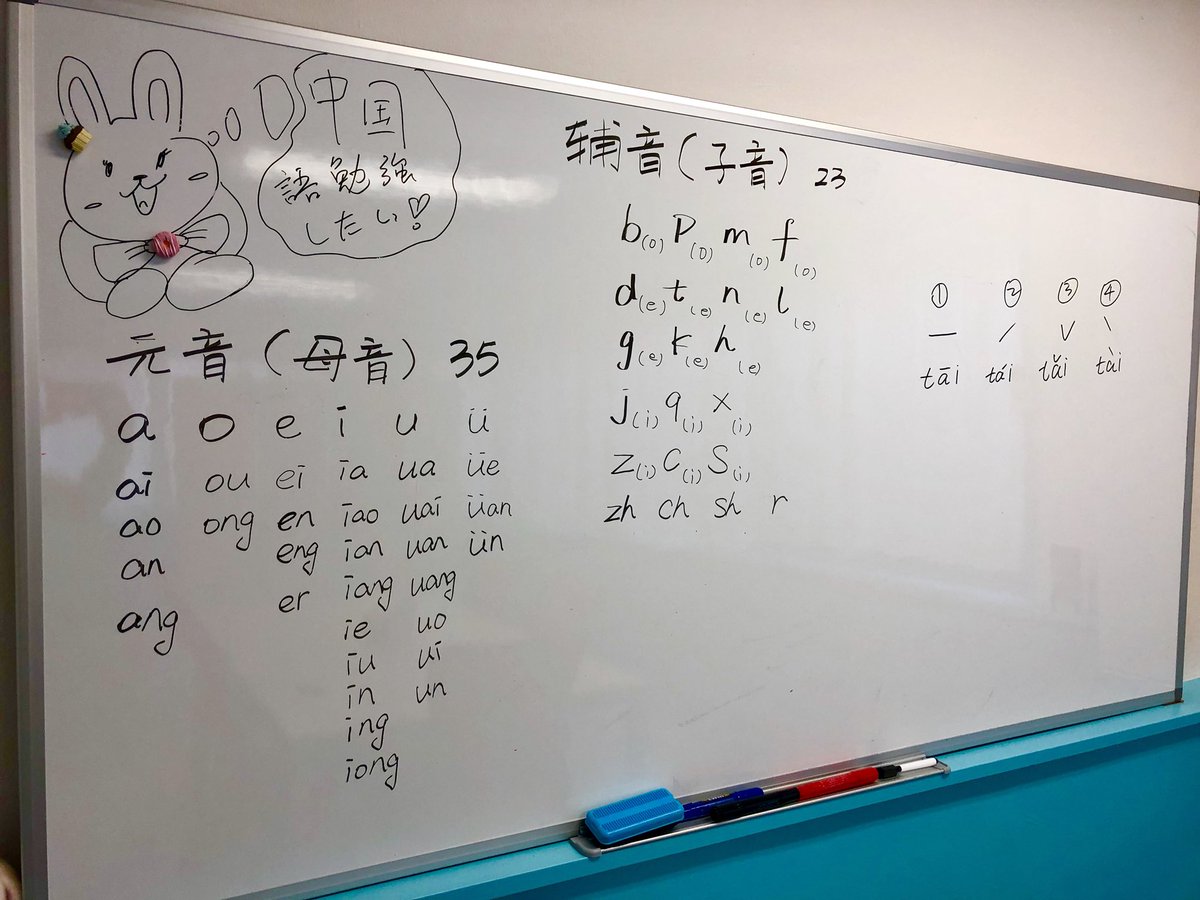 中国
語勉強
したい♡!
元音(母音) 35
a o e i u ü
ai ou ei ia ua üe
ao ong en iao uai üan
an eng ian uan ün
ang er iang uang
ie uo
iu ui
in un
ing
iong
辅音(子音) 23
b(o) p(o) m(o) f(o)
d(e) t(e) n(e) l(e)
g(e) k(e) h(e)
j(i) q(i) x(i)
z(i) c(i) s(i)
zh ch sh r
① ② ③ ④
ˉ ˊ ˇ ˋ
tāi tái tǎi tài